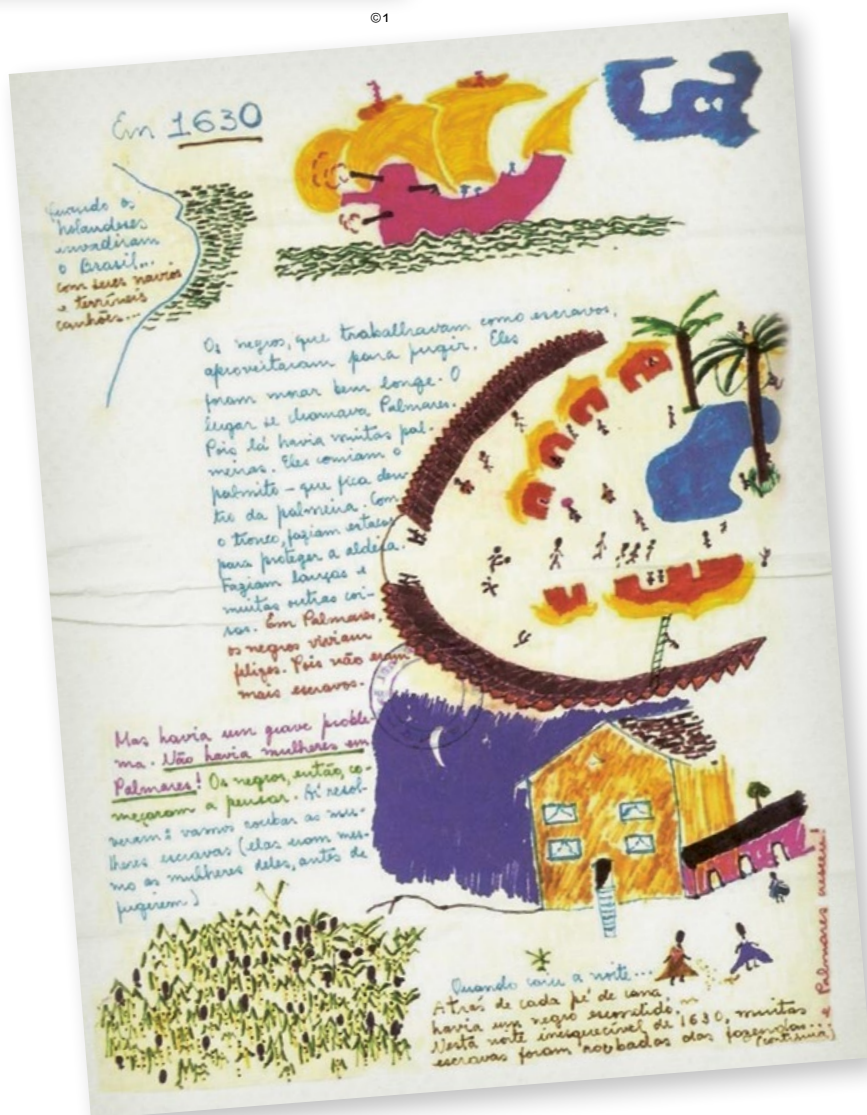 ©1
Em 1630
Quando os
holandeses
invadiram
o Brasil...
com seus navios
e terríveis
canhões...
Os negros, que trabalhavam como escravos,
aproveitaram para fugir. Eles
foram morar bem longe. O
lugar se chamava Palmares.
Pois lá havia muitas pal-
meiras. Eles comiam o
palmito - que fica den-
tro da palmeira. Com
o tronco, faziam estacas
para proteger a aldeia.
Faziam lanças e
muitas outras coi-
sas. Em Palmares,
os negros viviam
felizes. Pois não eram
mais escravos.
Mas havia um grave proble-
ma. Não havia mulheres em
Palmares! Os negros, então, co-
meçaram a pensar. Aí resol-
veram: vamos roubar as mu-
lheres escravas (elas eram mes-
mo as mulheres deles, antes de
fugirem)
Quando caiu a noite...
Atrás de cada pé de cana
havia um negro escondido.
Nesta noite inesquecível de 1630, muitas
escravas foram roubadas das fazendas...
(continua)
e Palmares cresceu!